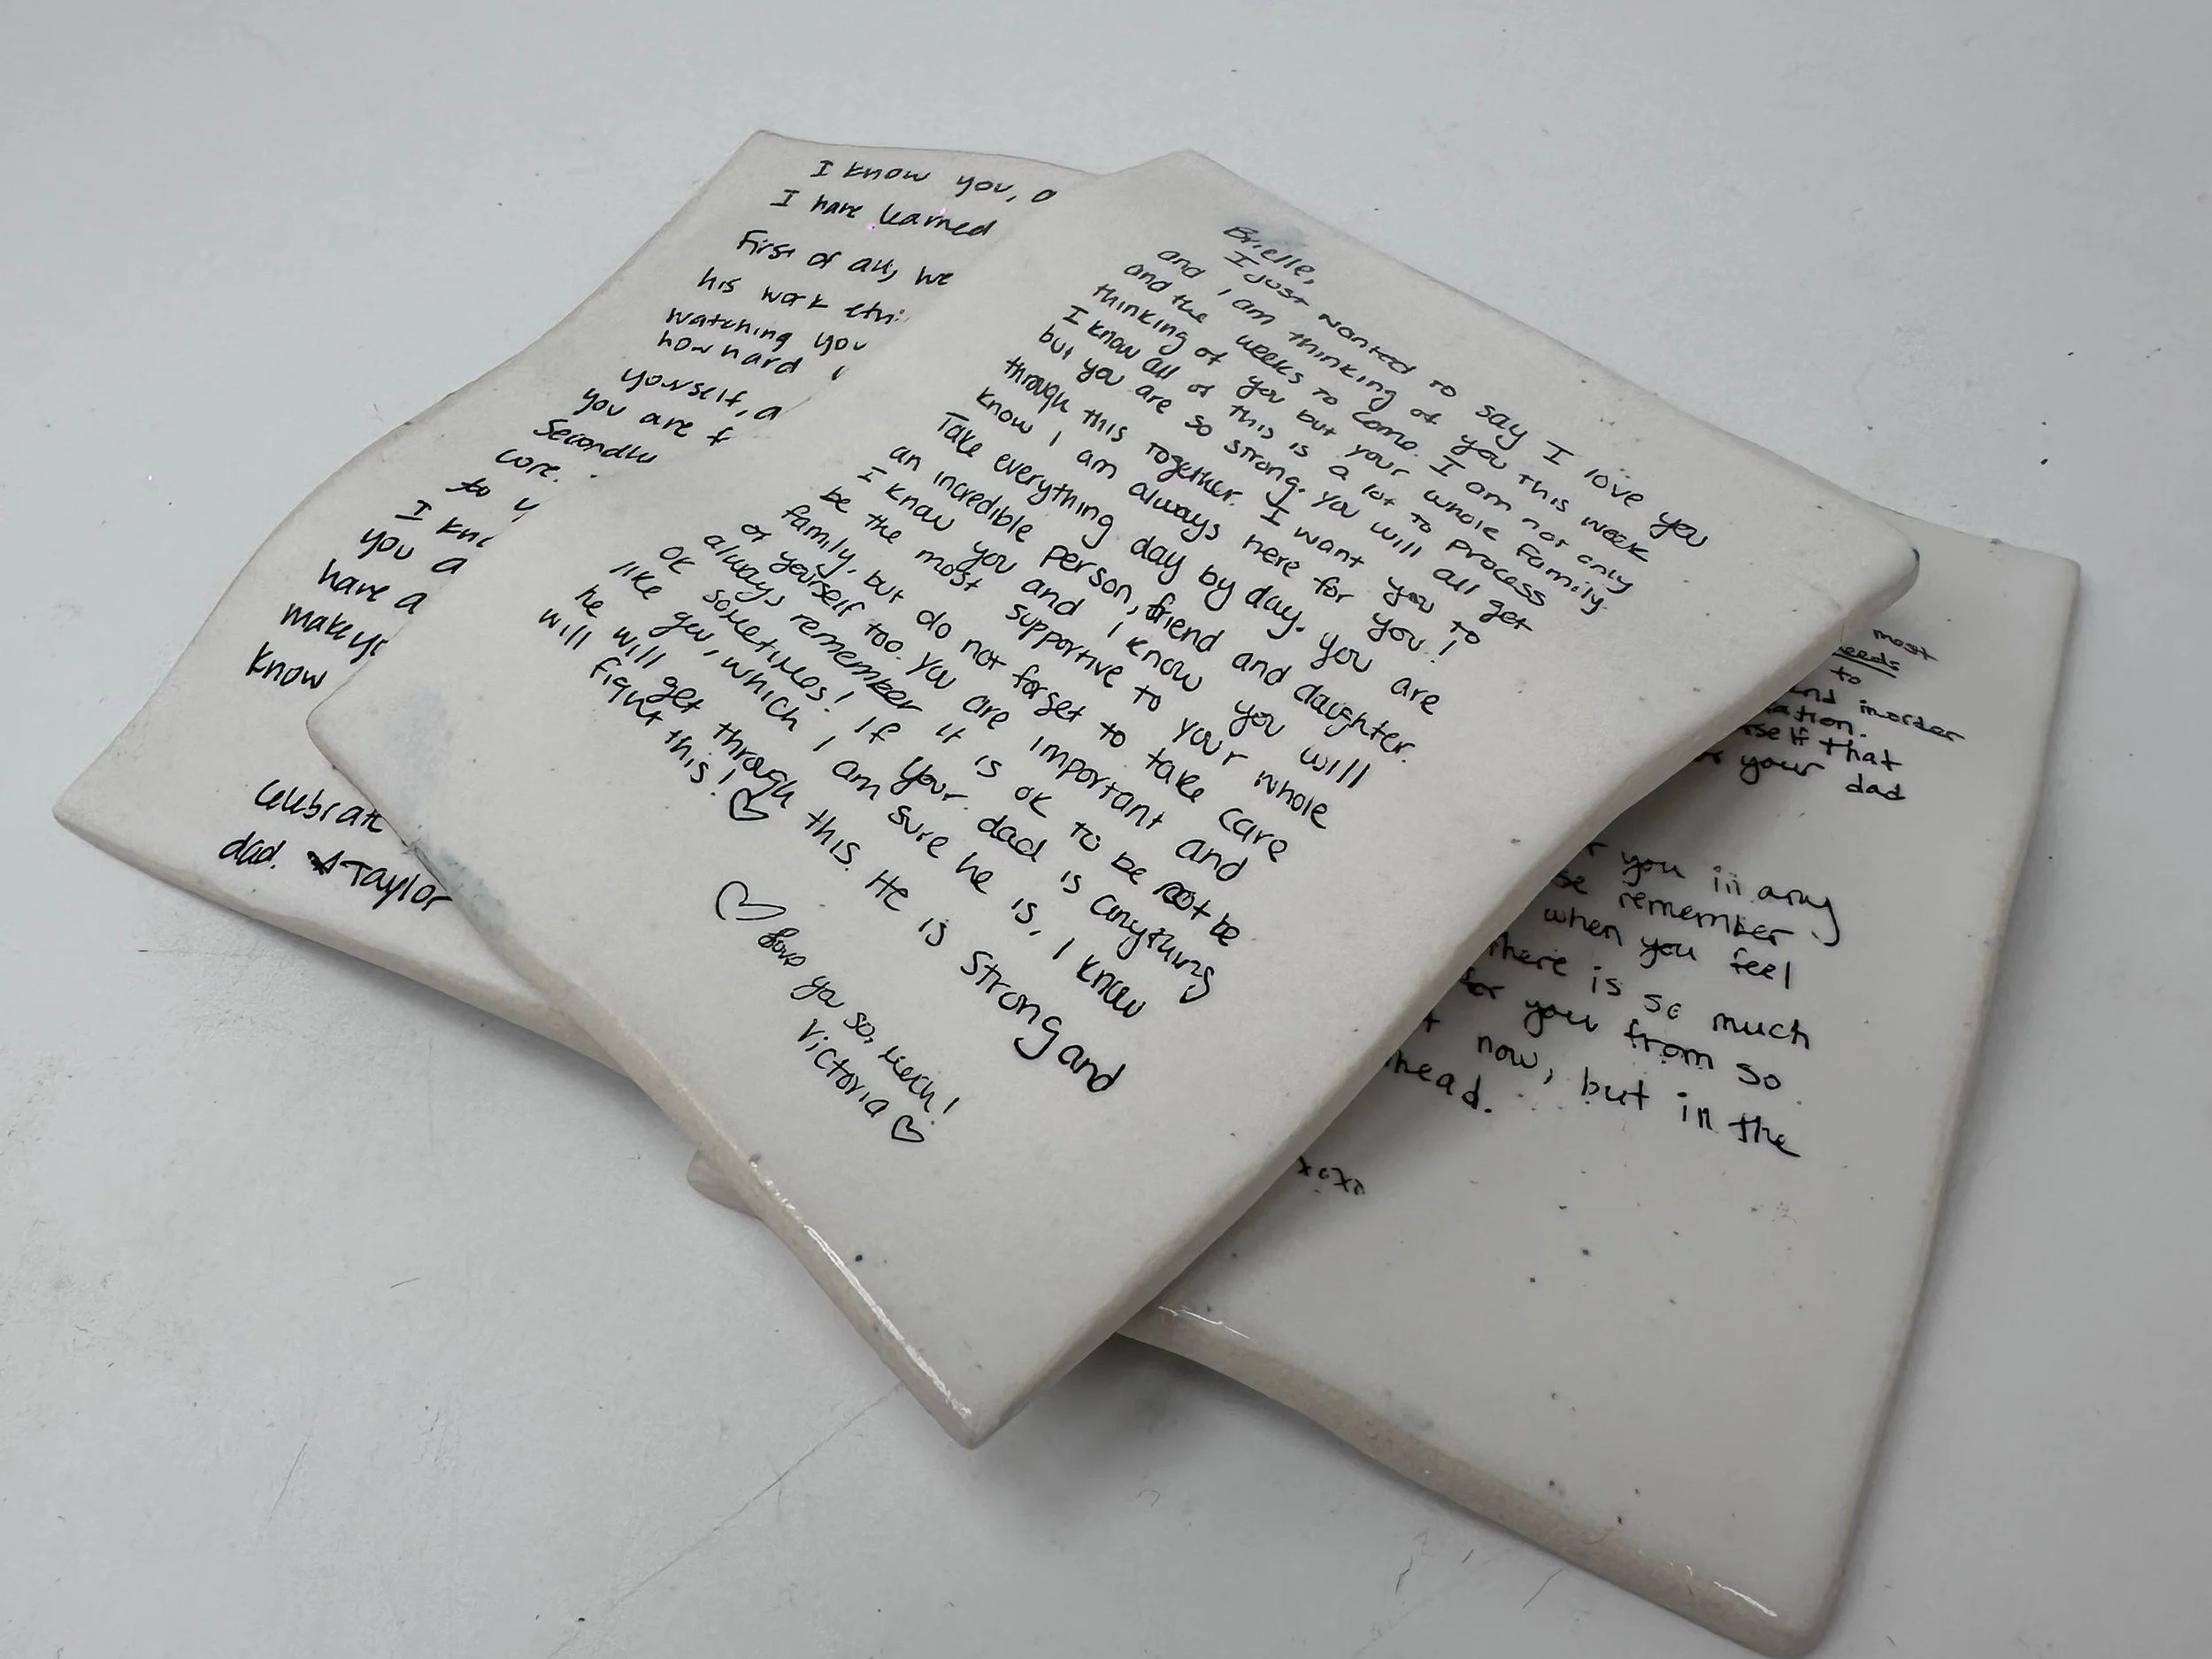 I know you, a
I have learned
First of all, we
his work ethi
watching you
how hard
yourself, a
you are f
Secondly
core.
to y
I kn
you a
have a
make yo
know
celebrate
dad. Taylor
Brielle,
I just wanted to say I love you
and I am thinking of you this week
and the weeks to come. I am not only
thinking of you but your whole family.
I know all of this is a lot to process
but you are so strong. You will all get
through this together. I want you to
know I am always here for you!
Take everything day by day. you are
an incredible person, friend and daughter.
I know you and I know you will
be the most supportive to your whole
family, but do not forget to take care
of yourself too. You are important and
always remember it is ok to be not be
ok sometimes! If your dad is anything
like you, which I am sure he is, I know
he will get through this. He is strong and
will fight this! ♡
♡ Love ya so, much!
Victoria ♡
most
needs
to
and inorder
ation.
rself that
your dad
r you in any
se remember
when you feel
there is so much
for you from so
t now, but in the
head.
xoxo